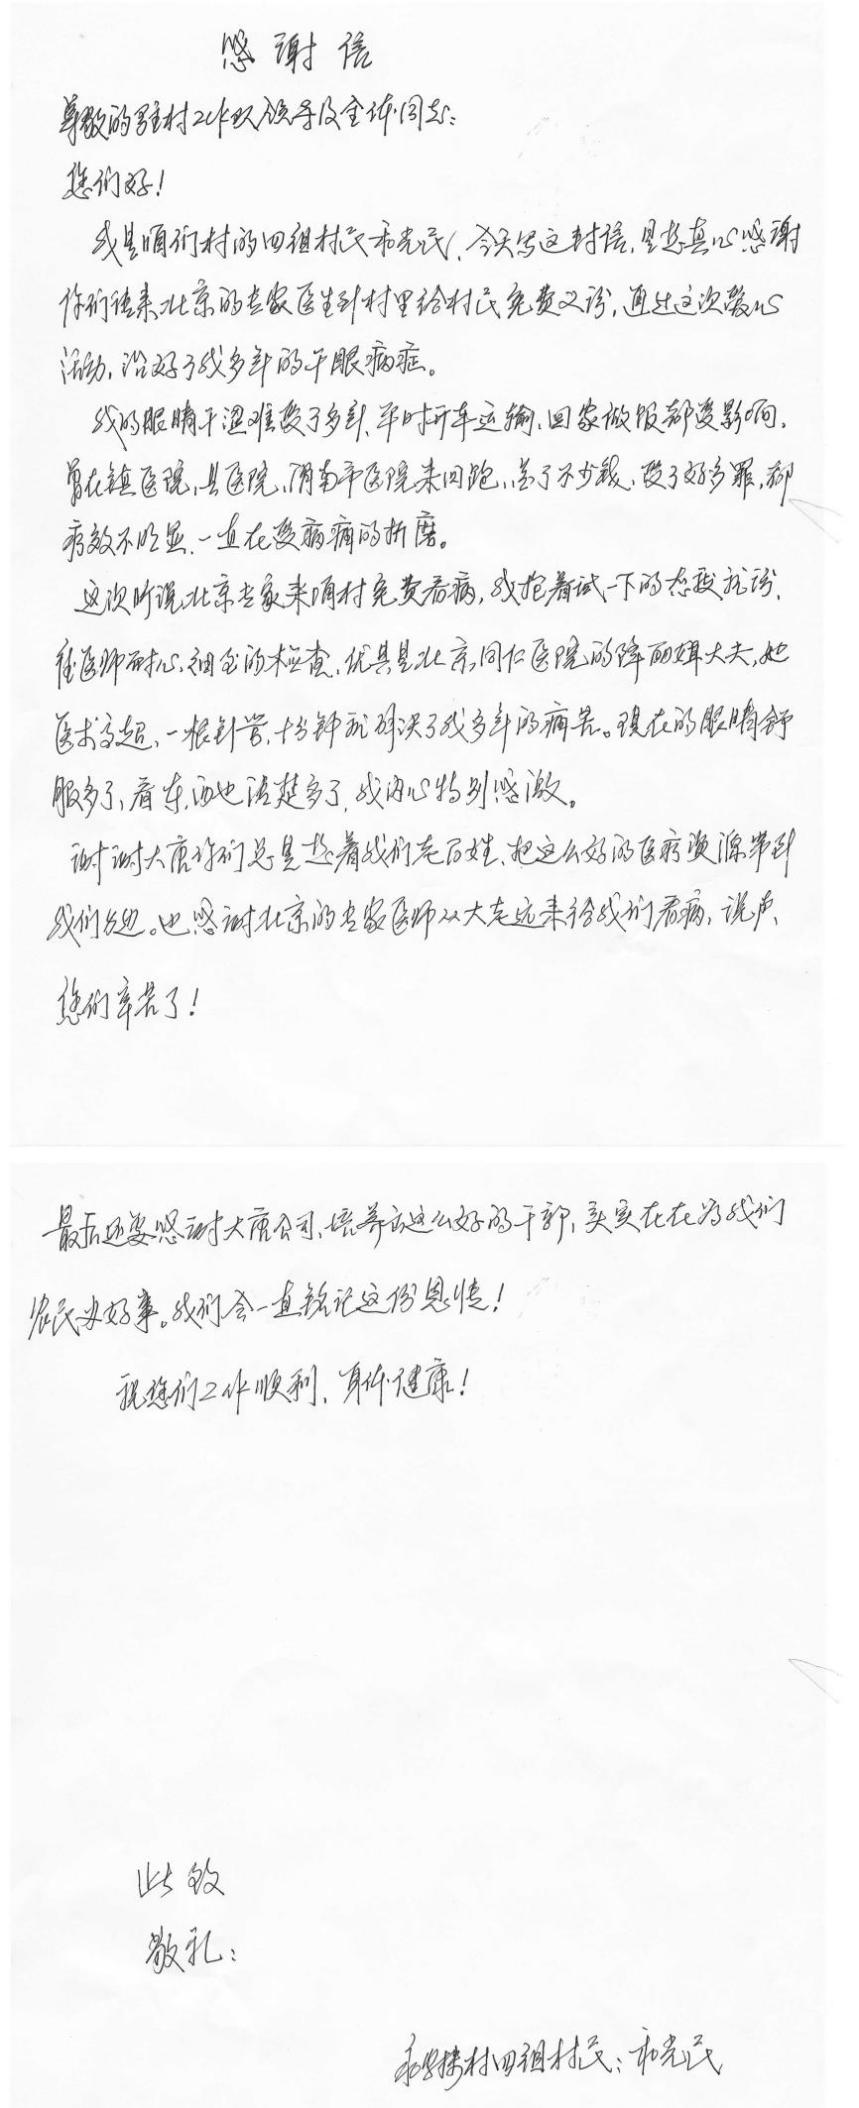 感谢信
尊敬的驻村工作队领导及全体同志:
您们好!
我是咱们村的四组村民和光民,今天写这封信,是想真心感谢
你们请来北京的专家医生到村里给村民免费义诊,通过这次爱心
活动,治好了我多年的干眼病症。
我的眼睛干涩难受了多年,平时开车运输,回家做饭都受影响,
曾在镇医院,县医院,渭南市医院来回跑,花了不少钱,受了好多罪,却
疗效不明显,一直在受病痛的折磨。
这次听说北京专家来咱村免费看病,我抱着试一下的态度就诊,
经医师耐心,细至的检查,优其是北京同仁医院的陈丽娟大夫,她
医术高超,一根针管,十分钟就解决了我多年的痛苦。现在的眼睛舒
服多了,看东西也清楚多了,我内心特别感激。
谢谢大唐你们总是想着我们老百姓,把这么好的医疗资源带到
我们身边。也感谢北京的专家医师从大老远来给我们看病,说声,
您们辛苦了!
最后还要感谢大唐公司,培养出这么好的干部,实实在在为我们
农民办好事。我们会一直铭记这份恩情!
祝您们工作顺利,身体健康!
此致
敬礼:
村四组村民:和光民